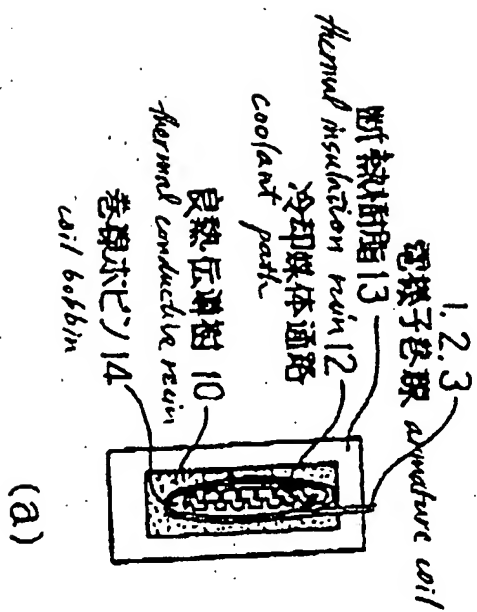 1.2.3
電機子巻線 armature coil
断熱樹脂 13
thermal insulation resin
冷却媒体通路 12
coolant path
良熱伝導樹 10
thermal conductive resin
巻線ボビン 14
coil bobbin
(a)